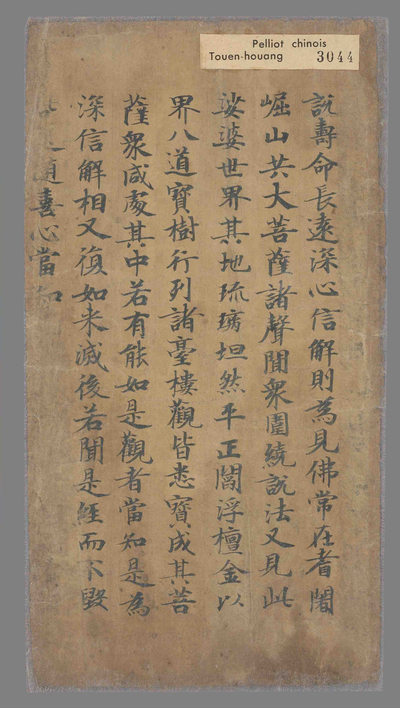 Pelliot chinois
Touen-houang 3044
說壽命長遠深心信解則為見佛常在耆闍
崛山共大菩薩諸聲聞衆圍繞說法又見此
娑婆世界其地琉璃坦然平正閻浮檀金以
界八道寶樹行列諸臺樓觀皆悉寶成其菩
薩衆咸處其中若有能如是觀者當知是為
深信解相又復如来滅後若聞是經而不毀
喜心當知